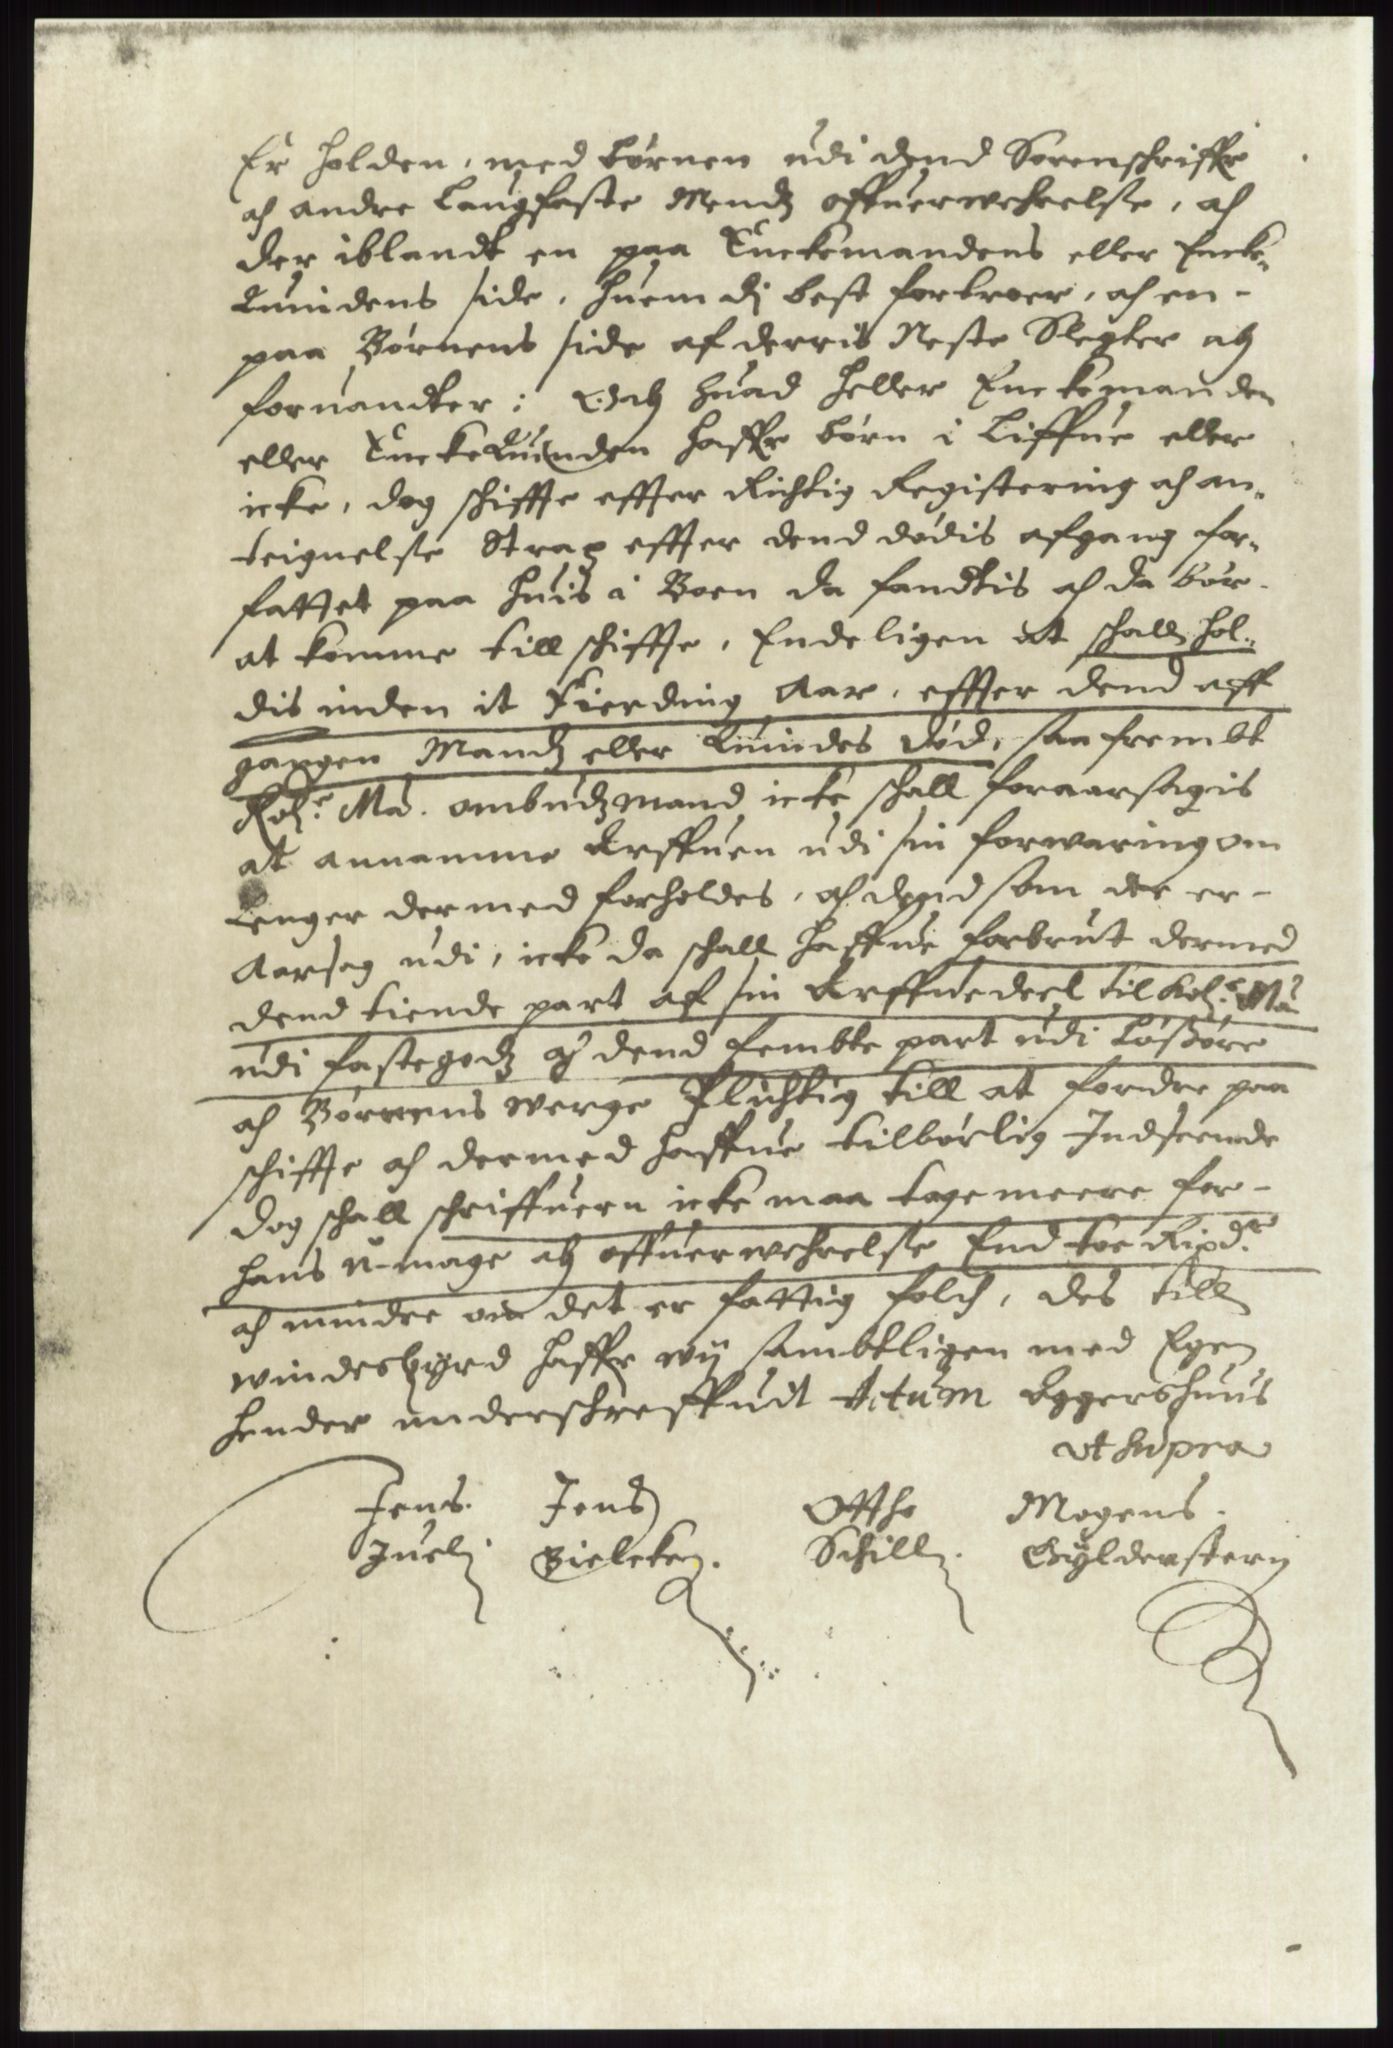 Er holden, med børnen udi dend Sorenschriffr
och andre Laugfaste Mendz offuerwehrelse, och
der iblandt en paa Enckemandens eller Encke-
Quindens side, huem dj best forbroer, och en-
paa Børnens side af derris Neste Slegter och
foruandter: Och huad heller Enckemanden
eller EnckeQuinden haffr børn i Liffue eller
icke, dog schiffte effter Richtig Registering och an-
teignelse Strax effter dend dødis afgang for-
fattet paa huis i Boen da fandtis och da bør
at komme till schiffte, Endeligen at schall hol-
dis inden it Fierding Aar, effter dend aff
gangen Mandz eller Quindes død, saa frembt
Ko: Ma: ombudzmand icke schall foraarsagis
at annamme Arffuen udi sin forwaring om
Lenger dermed forholdes, och dend som der er-
Aarsag udi, icke da schall haffue forbrut dermed
dend tiende part af sin Arffuedeel til Ko: Ma:
udi fastegodz och dend fembte part udi Løsøre
och Børnens werge Plichtig till at fordre paa
schiffte och dermed haffue tilbørlig Indseende
dog schall schriffuern icke maa tage meere for-
hans U-mage och offuerwehrelse End toe Rixdr
och mindre om det er fattig folch, des till
windesbyrd haffr wij sambtligen med Egen
hender underschreffuit Actum Aggershuus
ut supra
Jens Jens Otthe Mogens
Juel Bielcke Schill Gyldenstern